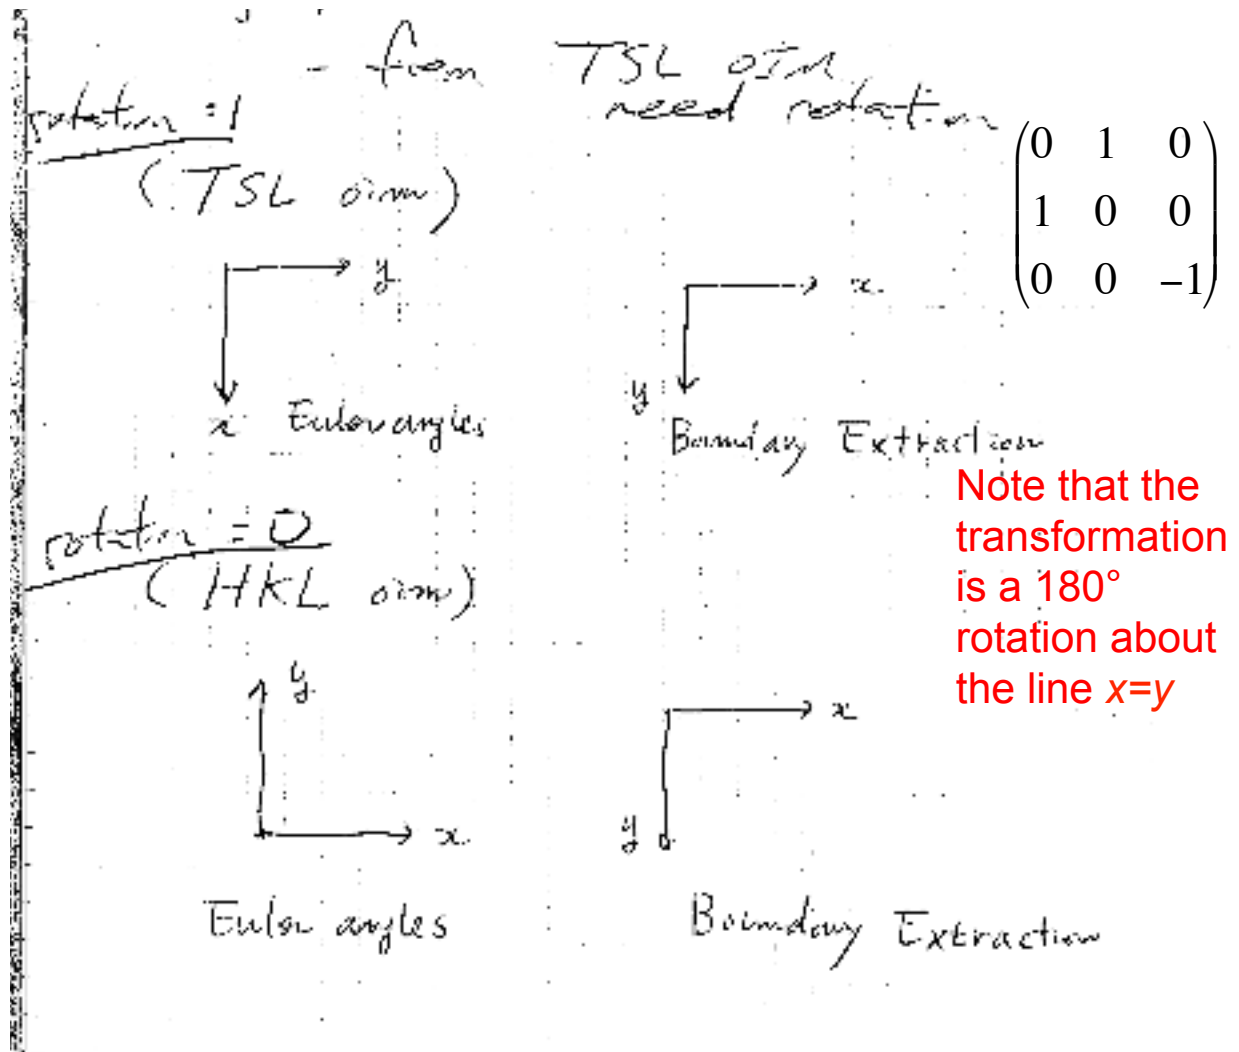 - from TSL OIM
need rotation
rotation = 1
(TSL oim)
0 1 0
1 0 0
0 0 −1
y
x
x
y
Euler angles
Boundary Extraction
Note that the
transformation
is a 180°
rotation about
the line x=y
rotation = 0
(HKL oim)
y
x
x
y
Euler angles
Boundary Extraction